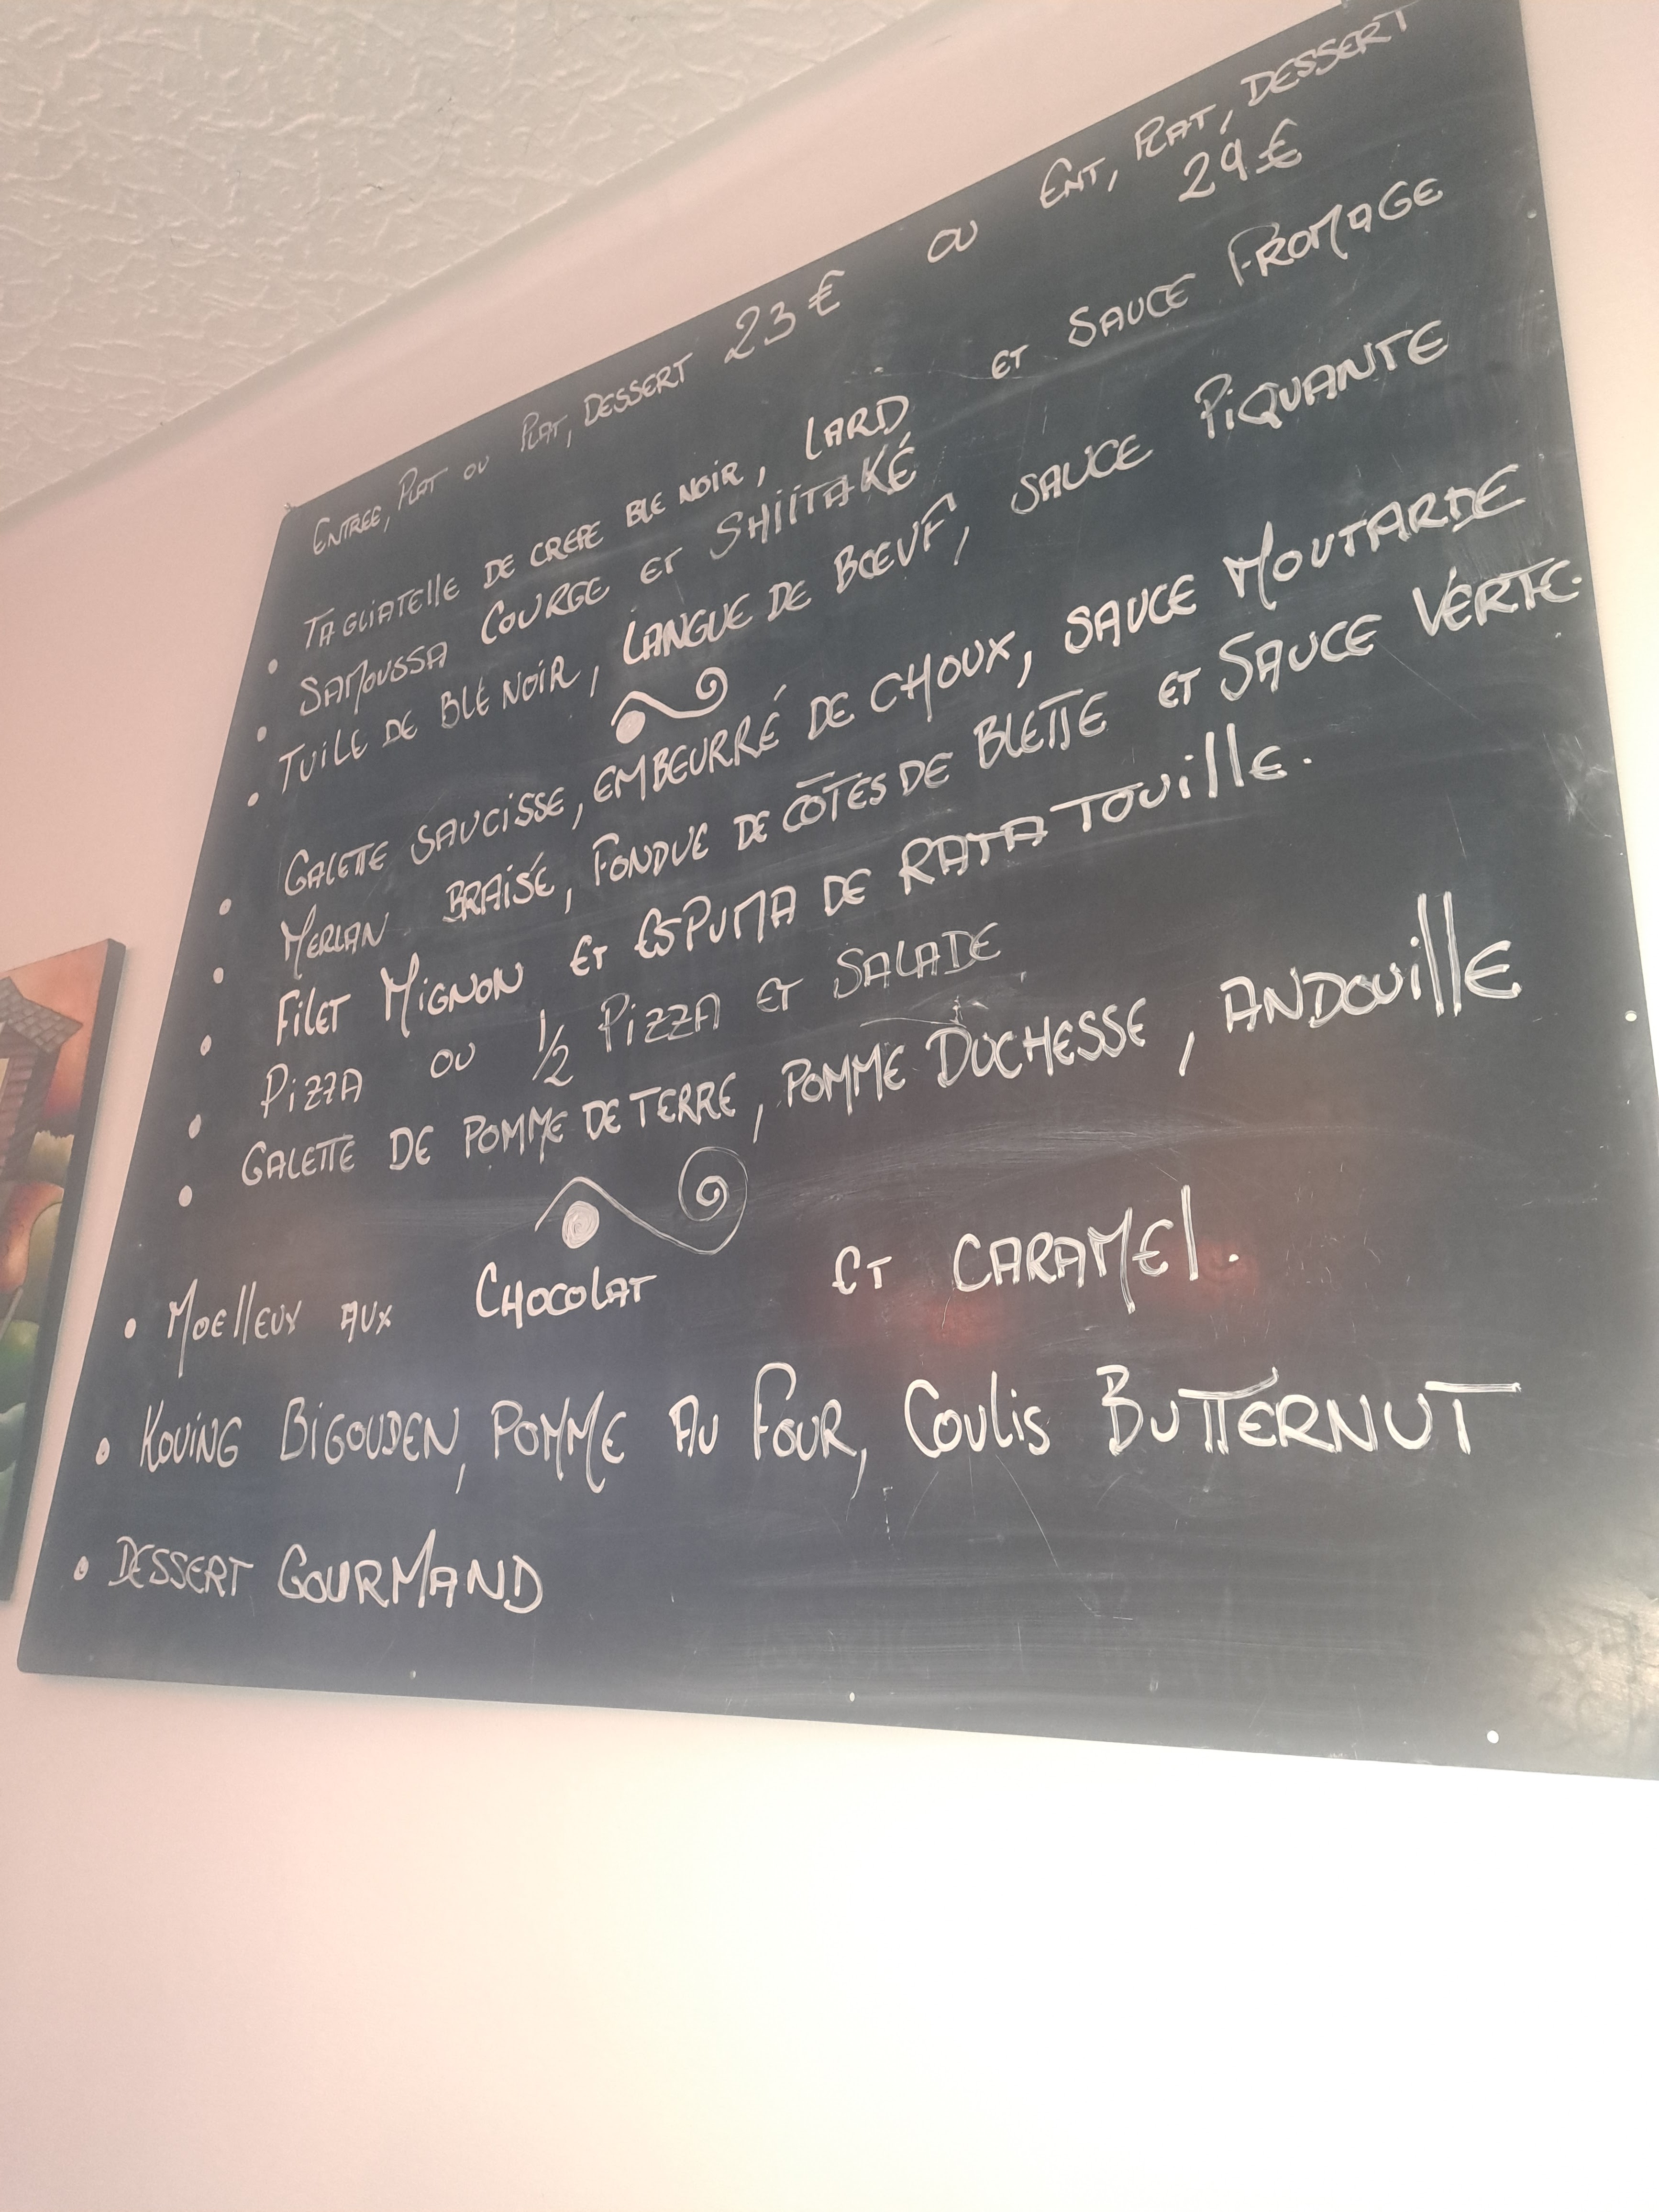 ENTREE, PLAT OU PLAT, DESSERT 23€ OU ENT, PLAT, DESSERT
29€
• TAGLIATELLE DE CREPE BLE NOIR, LARD ET SAUCE FROMAGE
• SAMOUSSA COURGE ET SHIITAKÉ
• TUILE DE BLÉ NOIR, LANGUE DE BŒUF, SAUCE PIQUANTE
• GALETTE SAUCISSE, EMBEURRÉ DE CHOUX, SAUCE MOUTARDE
• MERLAN BRAISÉ, FONDUE DE CÔTES DE BLETTE ET SAUCE VERTE.
• FILET MIGNON ET ESPUMA DE RATATOUILLE.
• PIZZA OU 1/2 PIZZA ET SALADE
• GALETTE DE POMME DE TERRE, POMME DUCHESSE, ANDOUILLE
• MOELLEUX AUX CHOCOLAT ET CARAMEL.
• KOUING BIGOUDEN, POMME AU FOUR, COULIS BUTTERNUT
• DESSERT GOURMAND